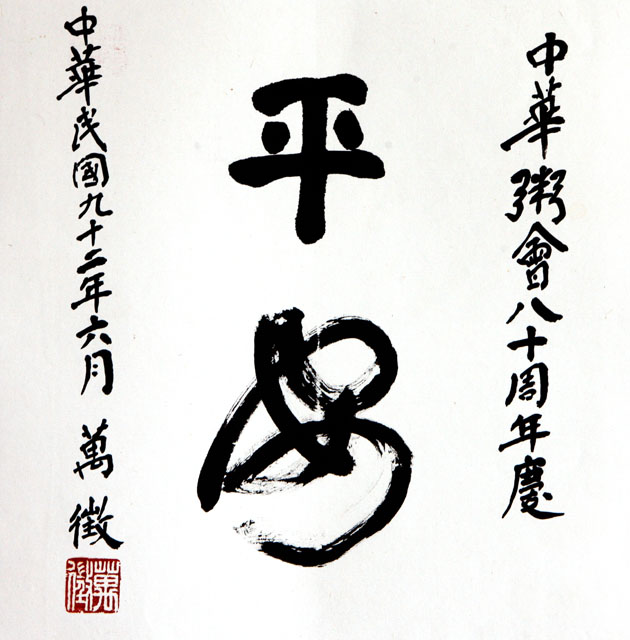 中華粥會八十周年慶
平安
中華民國九十二年六月 萬徵
萬徵